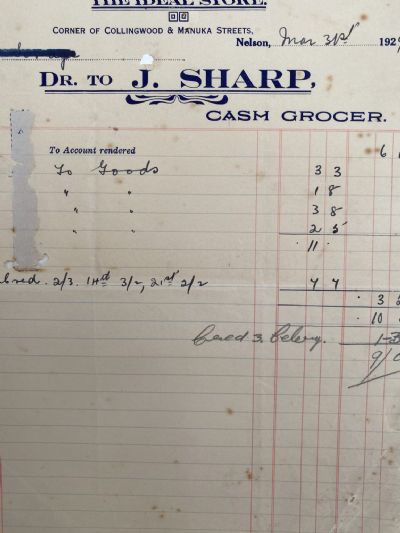 THE IDEAL STORE.
CORNER OF COLLINGWOOD & MANUKA STREETS,
Nelson, Mar 31st 192
DR. TO J. SHARP,
CASH GROCER.
To Account rendered 6
To Goods 3 3
" " 1 8
" " 3 8
" " 2 5
11
2/3. 3/2, 21st 2/2 4 4
3
10
Cred 3. Celery. 1-3
9/